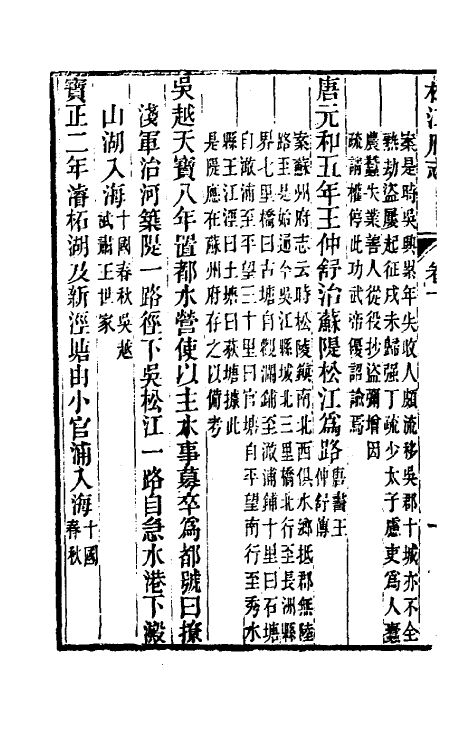 松江府志 卷十
案是時吳興累年失收人頗流移吳郡十城亦不全
熟劫盜屢起征戍未歸强丁疏少太子慮吏爲人蠹
農蠶失業善人從役抄盜彌增因
疏請權停此功武帝優詔諭焉
唐元和五年王仲舒治蘇隄松江爲路唐書王仲舒傳
案蘇州府志云時松陵鎭南北西俱水鄉抵郡無陸
路至是始通今吳江縣城北三里橋北行至長洲縣
界七里橋曰古塘自觀瀾鋪至澉浦鋪十里曰石塘
自澉浦至平望三十里曰官塘自平望南行至秀水
縣王江涇曰土塘曰荻塘據此
是隄應在蘇州府存之以備考
吳越天寶八年置都水營使以主水事募卒爲都號曰撩
淺軍治河築隄一路徑下吳松江一路自急水港下澱
山湖入海十國春秋吳越武肅王世家
寶正二年濬柘湖及新涇塘由小官浦入海十國春秋